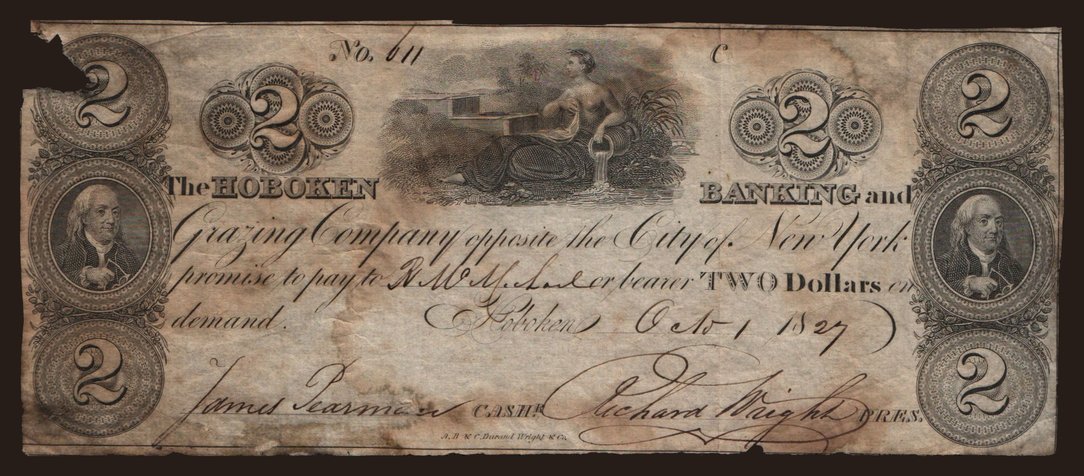 No. 611 C
2 2 2 2
The HOBOKEN BANKING and
Grazing Company opposite the City of New York
promise to pay to or bearer TWO Dollars on
demand. Hoboken Octo 1 1827
2 2
James Pearman CASHR. Richard Wright PRES.
A, B & C, Durand Wright & Co.